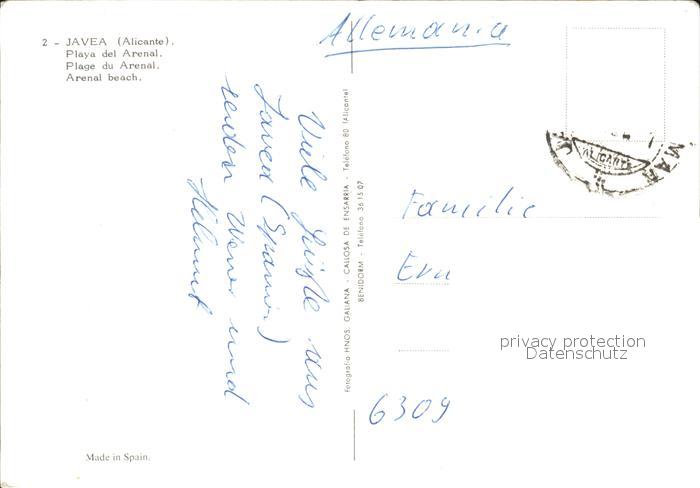 2 - JAVEA (Alicante).
Playa del Arenal.
Plage du Arenal.
Arenal beach.
Allemania
Viele Grüße aus
Javea (Spanien)
senden Werner und
Helmut
Fotografia HNOS. GALIANA - CALLOSA DE ENSARRIA - Teléfono 80 (Alicante)
BENIDORM - Teléfono 36 15 07
ALICANTE
Familie
6309
privacy protection
Datenschutz
Made in Spain.